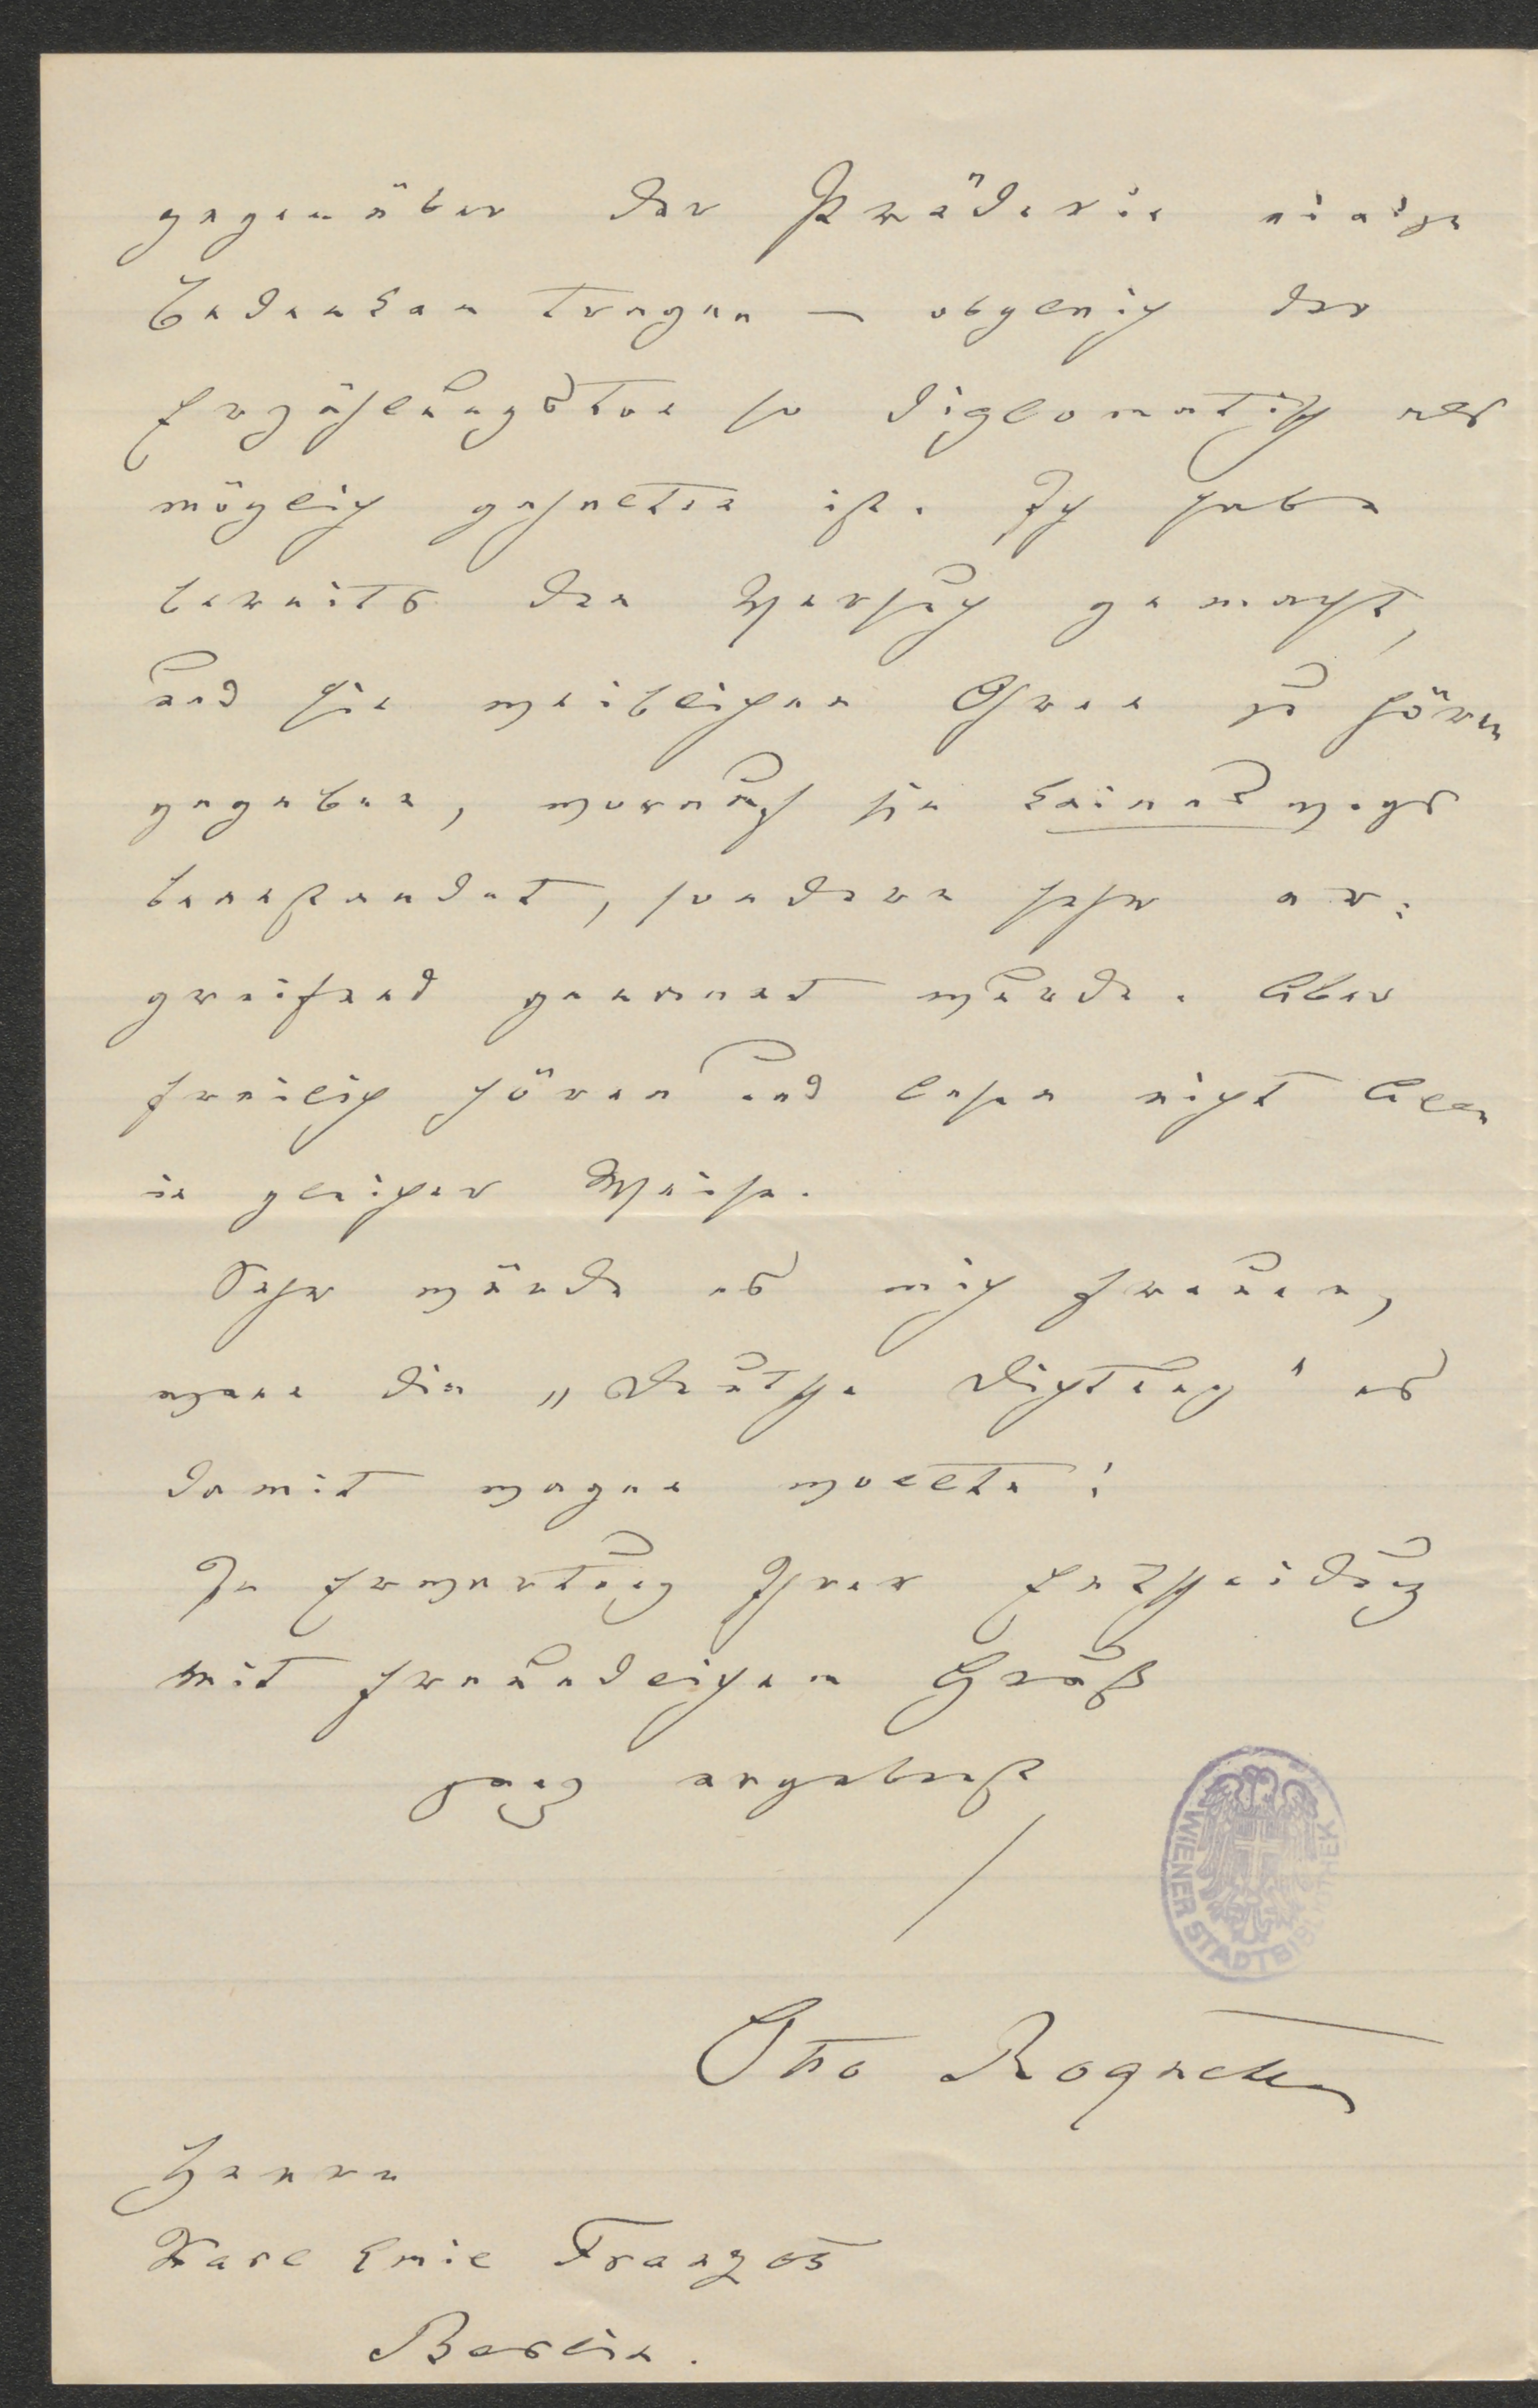 gegenüber der Prüderie einige
Bedenken tragen — obgleich der
Erzählungston so diplomatisch als
möglich gehalten ist. Ich habe
bereits den Versuch gemacht,
und sie weiblichen Ohren zu hören
gegeben, worauf sie keineswegs
beanstandet, sondern sehr er-
greifend genannt wurde. Aber
freilich hören und lesen nicht Alle
in gleicher Weise.
Sehr würde es mich freuen,
wenn die „Deutsche Dichtung" es
damit wagen wollte!
In Erwartung Ihrer Entscheidung
mit freundlichem Gruß
ganz ergebenst
Otto Roquette
Herrn
Karl Emil Franzos
Berlin.
WIENER STADTBIBLIOTHEK